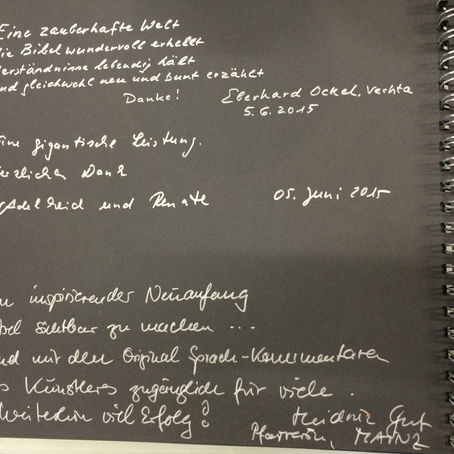 Eine zauberhafte Welt
die Bibel wundervoll erhellt
Verständnisse lebendig hält
und gleichwohl neu und bunt erzählt
Danke! Eberhard Ockel, Vechta
5.6.2015
ine gigantische Leistung.
erzlichen Dank
Adelheid und Renate 05. Juni 2015
n inspirierender Neuanfang
bel sichtbar zu machen ...
nd mit den Original Sprach-Kommentaren
s Künstlers zugänglich für viele.
Weiterhin viel Erfolg!
Gut
Pfarrerin, MAINZ